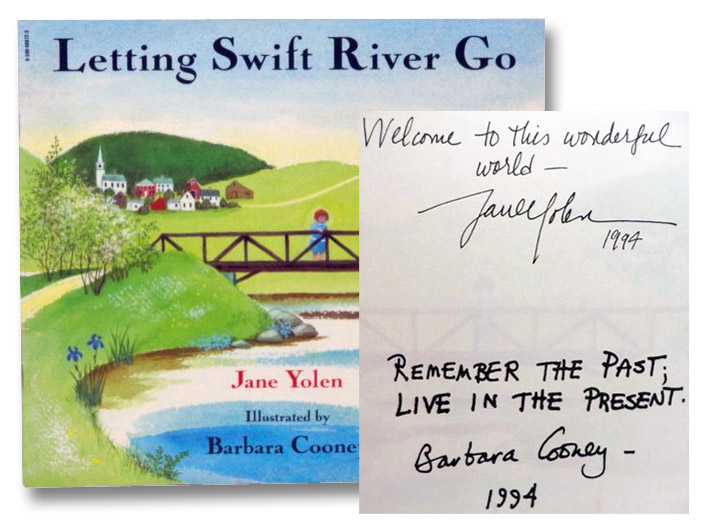 Letting Swift River Go
Jane Yolen
Illustrated by
Barbara Cooney
Welcome to this wonderful
world —
Jane Yolen
1994
REMEMBER THE PAST;
LIVE IN THE PRESENT.
Barbara Cooney –
1994